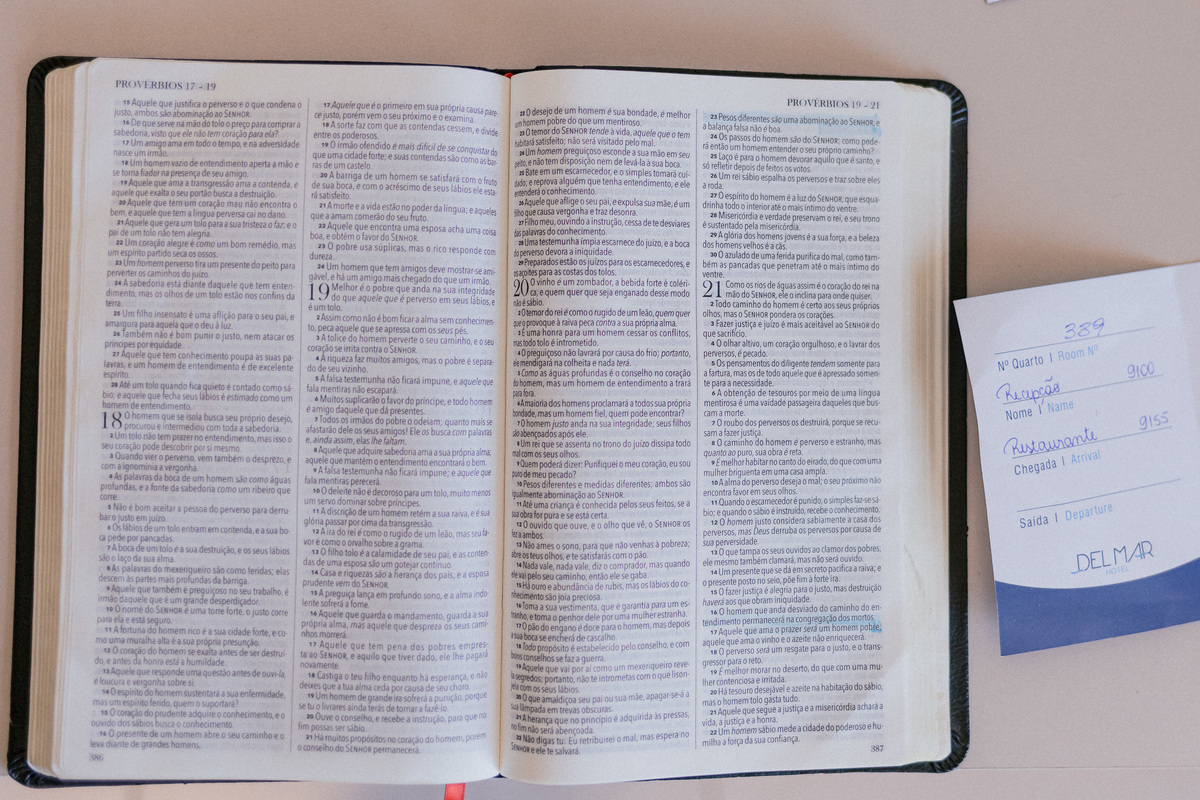 PROVÉRBIOS 17 - 19
15 Aquele que justifica o perverso e o que condena o
justo, ambos são abominação ao SENHOR.
16 De que serve na mão do tolo o preço para comprar a
sabedoria, visto que ele não tem coração para ela?
17 Um amigo ama em todo o tempo, e na adversidade
nasce um irmão.
18 Um homem vazio de entendimento aperta a mão e
se torna fiador na presença de seu amigo.
19 Aquele que ama a transgressão ama a contenda, e
aquele que exalta o seu portão busca a destruição.
20 Aquele que tem um coração mau não encontra o
bem, e aquele que tem a língua perversa cai no dano.
21 Aquele que gera um tolo para a sua tristeza o faz; e o
pai de um tolo não tem alegria.
22 Um coração alegre é como um bom remédio, mas
um espírito partido seca os ossos.
23 Um homem perverso tira um presente do peito para
perverter os caminhos do juízo.
24 A sabedoria está diante daquele que tem enten-
dimento, mas os olhos de um tolo estão nos confins da
terra.
25 Um filho insensato é uma aflição a seu pai, e
amargura para aquela que o deu à luz.
26 Também não é bom punir o justo, nem atacar os
príncipes por equidade.
27 Aquele que tem conhecimento poupa as suas pa-
lavras, e um homem de entendimento é de excelente
espírito.
28 Até um tolo quando fica quieto é contado como sá-
bio, e aquele que fecha seus lábios é estimado como um
homem de entendimento.
18 O homem que se isola busca seu próprio desejo,
procurou e intermediou com toda a sabedoria.
2 Um tolo não tem prazer no entendimento, mas isso o
seu coração pode descobrir por si mesmo.
3 Quando vier o perverso, vem também o desprezo, e
com a ignomínia a vergonha.
4 As palavras da boca de um homem são como águas
profundas, e a fonte da sabedoria como um ribeiro que
corre.
5 Não é bom aceitar a pessoa do perverso para derru-
bar o justo em juízo.
6 Os lábios de um tolo entram em contenda, e a sua bo-
ca pede por pancadas.
7 A boca de um tolo é a sua destruição, e os seus lábios
são o laço da sua alma.
8 As palavras do mexeriqueiro são como feridas; elas
descem às partes mais profundas da barriga.
9 Aquele que também é preguiçoso no seu trabalho, é
irmão daquele que é um grande desperdiçador.
10 O nome do SENHOR é uma torre forte, o justo corre
para ela e está seguro.
11 A fortuna do homem rico é a sua cidade forte, e co-
mo uma muralha alta é a sua própria presunção.
12 O coração do homem se exalta antes de ser destruí-
do, e antes da honra está a humildade.
13 Aquele que responde uma questão antes de ouvi-la,
é loucura e vergonha sobre si.
14 O espírito do homem sustentará a sua enfermidade,
mas um espírito ferido, quem o suportará?
15 O coração do prudente adquire o conhecimento, e o
ouvido dos sábios busca o conhecimento.
16 O presente de um homem abre o seu caminho e o
leva diante de grandes homens.
386
17 Aquele que é o primeiro em sua própria causa pare-
ce justo, porém vem o seu próximo e o examina.
18 A sorte faz com que as contendas cessem, e divide
entre os poderosos.
19 O irmão ofendido é mais difícil de se conquistar do
que uma cidade forte; e suas contendas são como as bar-
ras de um castelo.
20 A barriga de um homem se satisfará com o fruto
de sua boca, e com o acréscimo de seus lábios ele esta-
rá satisfeito.
21 A morte e a vida estão no poder da língua; e aqueles
que a amam comerão do seu fruto.
22 Aquele que encontra uma esposa acha uma coisa
boa, e obtém o favor do SENHOR.
23 O pobre usa súplicas, mas o rico responde com
dureza.
24 Um homem que tem amigos deve mostrar-se ami-
gável, e há um amigo mais chegado do que um irmão.
19 Melhor é o pobre que anda na sua integridade
do que aquele que é perverso em seus lábios, e
é um tolo.
2 Assim como não é bom ficar a alma sem conhecimen-
to, peca aquele que se apressa com os seus pés.
3 A tolice do homem perverte o seu caminho, e o seu
coração se irrita contra o SENHOR.
4 A riqueza faz muitos amigos, mas o pobre é separa-
do de seu vizinho.
5 A falsa testemunha não ficará impune, e aquele que
fala mentiras não escapará.
6 Muitos suplicarão o favor do príncipe, e todo homem
é amigo daquele que dá presentes.
7 Todos os irmãos do pobre o odeiam; quanto mais se
afastarão dele os seus amigos! Ele os busca com palavras
e, ainda assim, elas lhe faltam.
8 Aquele que adquire sabedoria ama a sua própria alma;
aquele que mantém o entendimento encontrará o bem.
9 A falsa testemunha não ficará impune; e aquele que
fala mentiras perecerá.
10 O deleite não é decoroso para um tolo, muito menos
um servo dominar sobre príncipes.
11 A discrição de um homem retém a sua raiva, e é sua
glória passar por cima da transgressão.
12 A ira do rei é como o rugido de um leão, mas seu fa-
vor é como o orvalho sobre a grama.
13 O filho tolo é a calamidade de seu pai, e as conten-
das de uma esposa são um gotejar contínuo.
14 Casa e riquezas são a herança dos pais; e a esposa
prudente vem do SENHOR.
15 A preguiça lança em profundo sono, e a alma indo-
lente sofrerá a fome.
16 Aquele que guarda o mandamento, guarda a sua
própria alma, mas aquele que despreza os seus cami-
nhos morrerá.
17 Aquele que tem pena dos pobres empres-
ta ao SENHOR, e aquilo que tiver dado, ele lhe pagará
novamente.
18 Castiga o teu filho enquanto há esperança, e não
deixes que a tua alma ceda por causa de seu choro.
19 Um homem de grande ira sofrerá a punição, porque
se tu o livrares ainda terás de tornar a fazê-lo.
20 Ouve o conselho, e recebe a instrução, para que no
fim possas ser sábio.
21 Há muitos propósitos no coração do homem, porém
o conselho do SENHOR permanecerá.
22 O desejo de um homem é sua bondade, é melhor
um homem pobre do que um mentiroso.
23 O temor do SENHOR tende à vida, aquele que o tem
habitará satisfeito; não será visitado pelo mal.
24 Um homem preguiçoso esconde a sua mão em seu
peito, e não tem disposição nem de levá-la à sua boca.
25 Bate em um escarnecedor, e o simples tomará cui-
dado; e reprova alguém que tenha entendimento, e ele
entenderá o conhecimento.
26 Aquele que aflige o seu pai, e expulsa sua mãe, é um
filho que causa vergonha e traz desonra.
27 Filho meu, ouvindo a instrução, cessa de te desviares
das palavras do conhecimento.
28 Uma testemunha ímpia escarnece do juízo, e a boca
do perverso devora a iniquidade.
29 Preparados estão os juízos para os escarnecedores, e
os açoites para as costas dos tolos.
20 O vinho é um zombador, a bebida forte é coléri-
ca, e quem quer que seja enganado desse modo
não é sábio.
2 O temor do rei é como o rugido de um leão, quem quer
que o provoque à raiva peca contra a sua própria alma.
3 É uma honra para um homem cessar os conflitos,
mas todo tolo é intrometido.
4 O preguiçoso não lavrará por causa do frio; portanto,
ele mendigará na colheita e nada terá.
5 Como as águas profundas é o conselho no coração
do homem, mas um homem de entendimento a trará
para fora.
6 A maioria dos homens proclamará a todos sua própria
bondade, mas um homem fiel, quem pode encontrar?
7 O homem justo anda na sua integridade; seus filhos
são abençoados após ele.
8 Um rei que se assenta no trono do juízo dissipa todo
mal com os seus olhos.
9 Quem poderá dizer: Purifiquei o meu coração, eu sou
puro de meu pecado?
10 Pesos diferentes e medidas diferentes; ambos são
igualmente abominação ao SENHOR.
11 Até uma criança é conhecida pelos seus feitos, se a
sua obra for pura e se está certa.
12 O ouvido que ouve, e o olho que vê, o SENHOR os
fez a ambos.
13 Não ames o sono, para que não venhas à pobreza;
abre os teus olhos, e te satisfarás com o pão.
14 Nada vale, nada vale, diz o comprador, mas quando
ele vai pelo seu caminho, então ele se gaba.
15 Há ouro e abundância de rubis, mas os lábios do co-
nhecimento são joia preciosa.
16 Toma a sua vestimenta, que é garantia para um es-
tranho, e toma o penhor dele por uma mulher estranha.
17 O pão do engano é doce para o homem, mas depois
a sua boca se encherá de cascalho.
18 Todo propósito é estabelecido pelo conselho, e com
bons conselhos se faça a guerra.
19 Aquele que vai por aí como um mexeriqueiro reve-
la segredos; portanto, não te intrometas com o que lison-
jeia com os seus lábios.
20 O que amaldiçoa seu pai ou sua mãe, apagar-se-á a
sua lâmpada em trevas obscuras.
21 A herança que no princípio é adquirida às pressas,
no fim não será abençoada.
22 Não digas tu: Eu retribuirei o mal, mas espera no
SENHOR e ele te salvará.
PROVÉRBIOS 19 - 21
23 Pesos diferentes são uma abominação ao SENHOR, e
a balança falsa não é boa.
24 Os passos do homem são do SENHOR; como pode-
rá então um homem entender o seu próprio caminho?
25 Laço é para o homem devorar aquilo que é santo, e
só refletir depois de feitos os votos.
26 Um rei sábio espalha os perversos e traz sobre eles
a roda.
27 O espírito do homem é a luz do SENHOR, que esqua-
drinha todo o interior até o mais íntimo do ventre.
28 Misericórdia e verdade preservam o rei, e seu trono
é sustentado pela misericórdia.
29 A glória dos homens jovens é a sua força, e a beleza
dos homens velhos é a cãs.
30 O azulado de uma ferida purifica do mal, como tam-
bém as pancadas que penetram até o mais íntimo do
ventre.
21 Como os rios de águas assim é o coração do rei na
mão do SENHOR, ele o inclina para onde quiser.
2 Todo caminho do homem é certo aos seus próprios
olhos, mas o SENHOR pondera os corações.
3 Fazer justiça e juízo é mais aceitável ao SENHOR do
que sacrifício.
4 O olhar altivo, um coração orgulhoso, e o lavrar dos
perversos, é pecado.
5 Os pensamentos do diligente tendem somente para
a fartura, mas os de todo aquele que é apressado somen-
te para a necessidade.
6 A obtenção de tesouros por meio de uma língua
mentirosa é uma vaidade passageira daqueles que bus-
cam a morte.
7 O roubo dos perversos os destruirá, porque se recu-
sam a fazer justiça.
8 O caminho do homem é perverso e estranho, mas
quanto ao puro, sua obra é reta.
9 É melhor habitar no canto do eirado, do que com uma
mulher briguenta em uma casa ampla.
10 A alma do perverso deseja o mal; o seu próximo não
encontra favor em seus olhos.
11 Quando o escarnecedor é punido, o simples faz-se sá-
bio; e quando o sábio é instruído, recebe o conhecimento.
12 O homem justo considera sabiamente a casa dos
perversos, mas Deus derruba os perversos por causa de
sua perversidade.
13 O que tampa os seus ouvidos ao clamor dos pobres,
ele mesmo também clamará, mas não será ouvido.
14 Um presente que se dá em secreto pacifica a raiva; e
o presente posto no seio, põe fim à forte ira.
15 O fazer justiça é alegria para o justo, mas destruição
haverá aos que obram iniquidade.
16 O homem que anda desviado do caminho do en-
tendimento permanecerá na congregação dos mortos.
17 Aquele que ama o prazer será um homem pobre;
aquele que ama o vinho e o azeite não enriquecerá.
18 O perverso será um resgate para o justo, e o trans-
gressor para o reto.
19 É melhor morar no deserto, do que com uma mu-
lher contenciosa e irritada.
20 Há tesouro desejável e azeite na habitação do sábio,
mas o homem tolo gasta tudo.
21 Aquele que segue a justiça e a misericórdia achará a
vida, a justiça e a honra.
22 Um homem sábio mede a cidade do poderoso e hu-
milha a força da sua confiança.
387
339
Nº Quarto | Room Nº
Recepção 9100
Nome | Name
Restaurante 9155
Chegada | Arrival
Saída | Departure
DELMAR
HOTEL